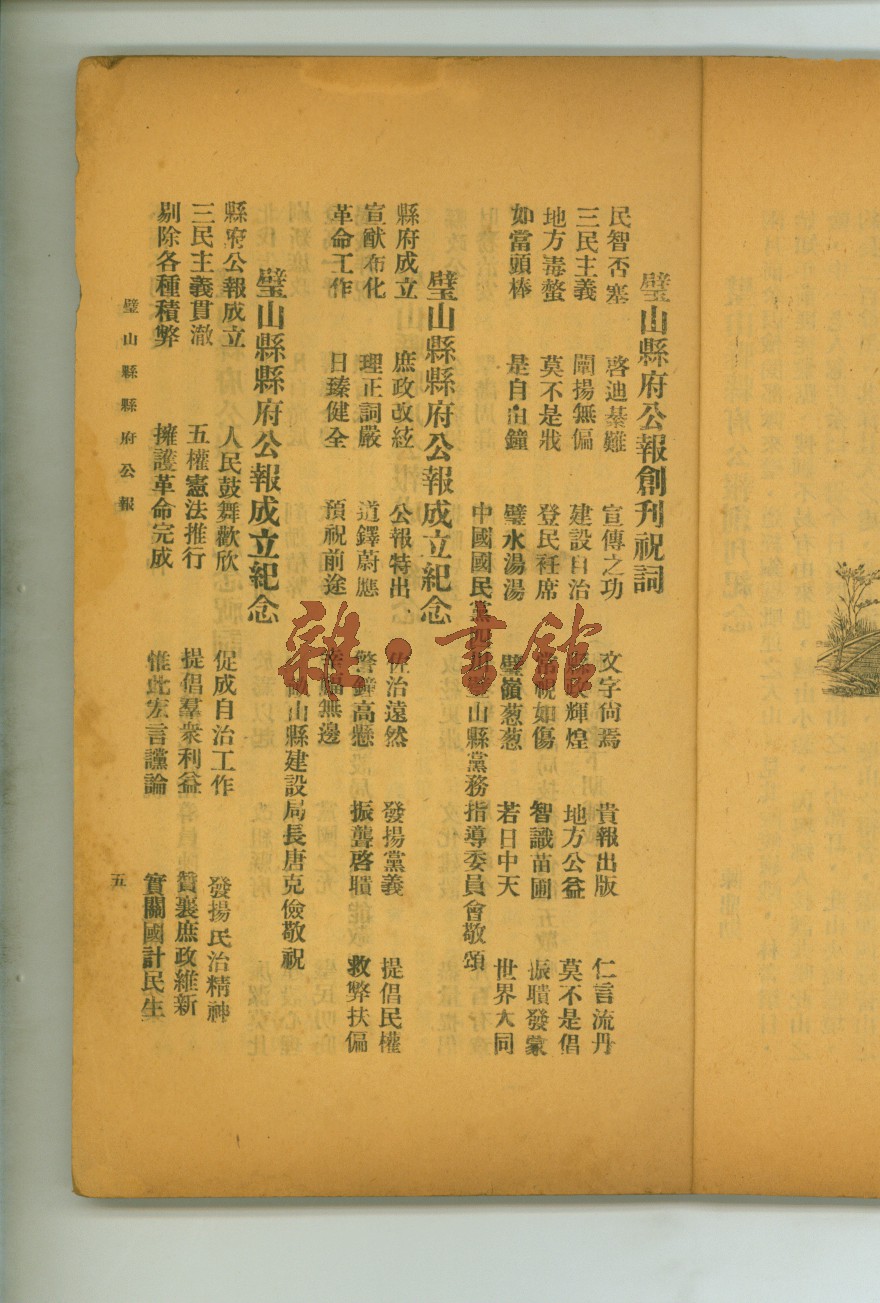 璧山縣府公報創刊祝詞
民智否塞 啓迪綦難 宣傳之功 文字尙焉 貴報出版 仁言流丹
三民主義 闡揚無偏 建設自治 政輝煌 地方公益 莫不是倡
地方毒螫 莫不是戕 登民衽席 視如傷 智識苗圃 振聵發蒙
如當頭棒 是自由鐘 璧水湯湯 璧嶺葱葱 若日中天 世界大同
中國國民黨四川璧山縣黨務指導委員會敬頌
璧山縣縣府公報成立紀念
縣府成立 庶政改絃 公報特出 佐治遠然 發揚黨義 提倡民權
宣猷布化 理正詞嚴 遒鐸蔚應 警鐘高懸 振聾啓聵 救弊扶偏
革命工作 日臻健全 預祝前途 幸福無邊
山縣建設局長唐克儉敬祝
璧山縣縣府公報成立紀念
縣府公報成立 人民鼓舞歡欣 促成自治工作 發揚民治精神
三民主義貫澈 五權憲法推行 提倡羣衆利益 贊襄庶政維新
剔除各種積弊 擁護革命完成 惟此宏言讜論 實關國計民生
璧山縣縣府公報
五
雜·書館